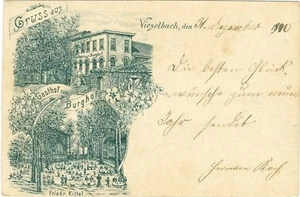 Gruss aus
Vieselbach, den 31. Dezember 1900
Gasthof zum
Burghof
Die besten Glück-
wünsche zum neuen
Jahr sendet
Hermann Koch
Friedr. Kittel